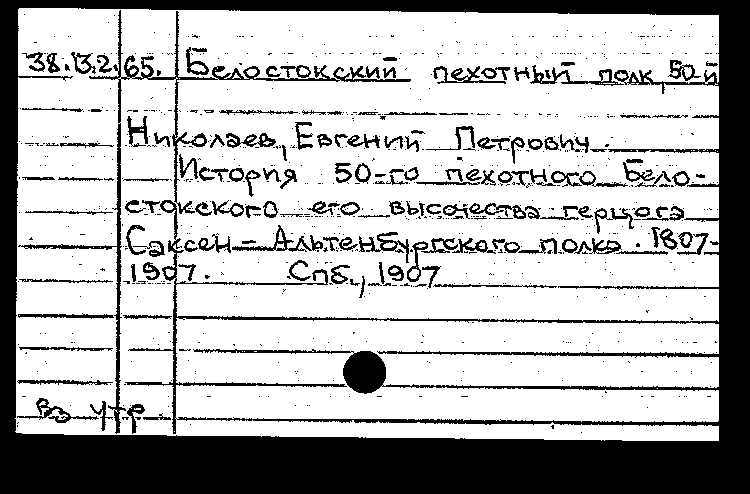 38.13.2.65. Белостокский пехотный полк, 50-й
Николаев, Евгений Петрович.
История 50-го пехотного Бело-
стокского его высочества герцога
Саксен-Альтенбургского полка. 1807-
1907. Спб., 1907
вз утр